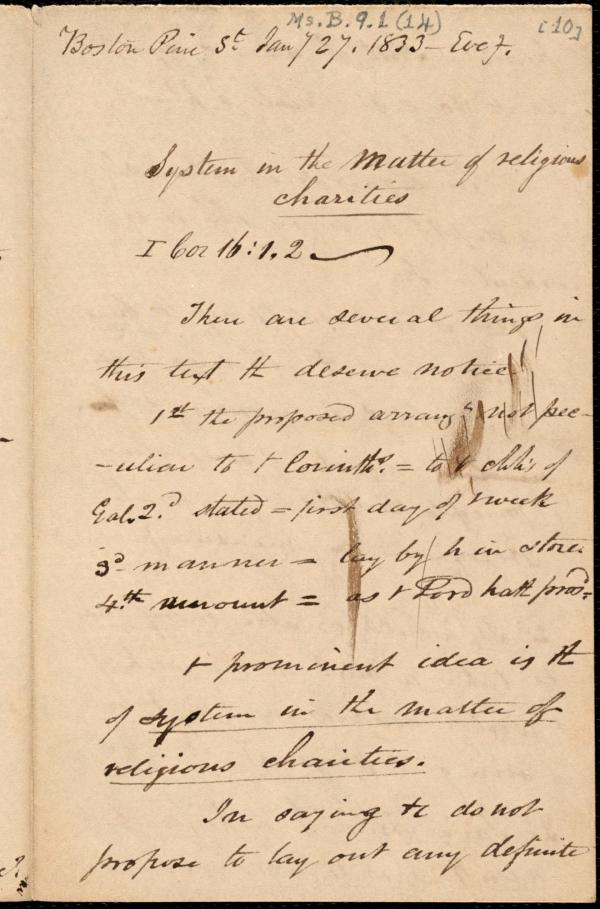 Ms. B. 9. 1 (14)
[10]
Boston Pine St Jany 27. 1833 - Eveg.
System in the Matter of religious
charities
I Cor 16:1.2
There are several things in
this text tt deserve notice
1st the proposed arrangt not pec-
-uliar to t Corinths. = to t chhs of
Gal. 2d stated = first day of t week
3d manner = lay by h in store
4th amount = as t Lord hath prosd=
t prominent idea is tt
of system in the matter of
religious charities.
In saying do not
propose to lay out any definite